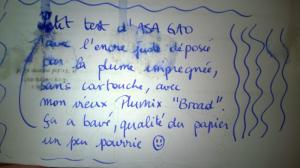 Petit test d'ASA GAO
avec l'encre juste déposée
par la plume imprégnée,
sans cartouche, avec
mon vieux Plumix "Broad".
Ça a bavé, qualité du papier
un peu pourrie ☺